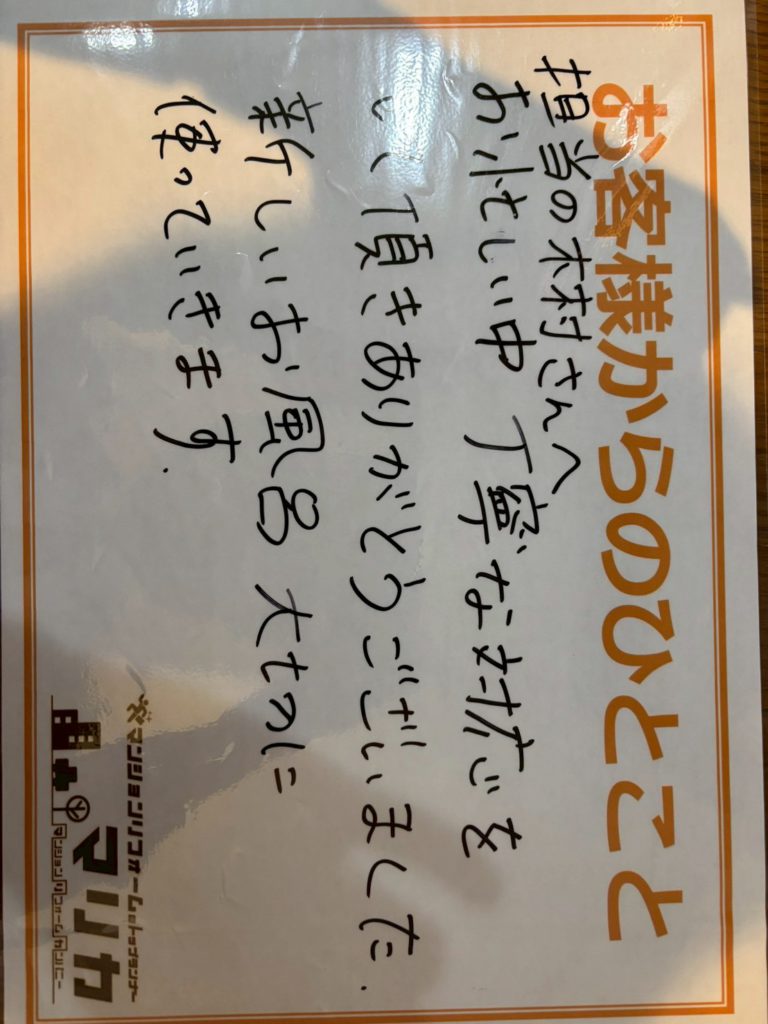 お客様からのひとこと
担当の木村さんへ
お忙しい中 丁寧な対応を
して頂きありがとうございました.
新しいお風呂 大切に
使っていきます.
マンションリフォームのトップランナー
マリカ
マンションリフォームカンパニー